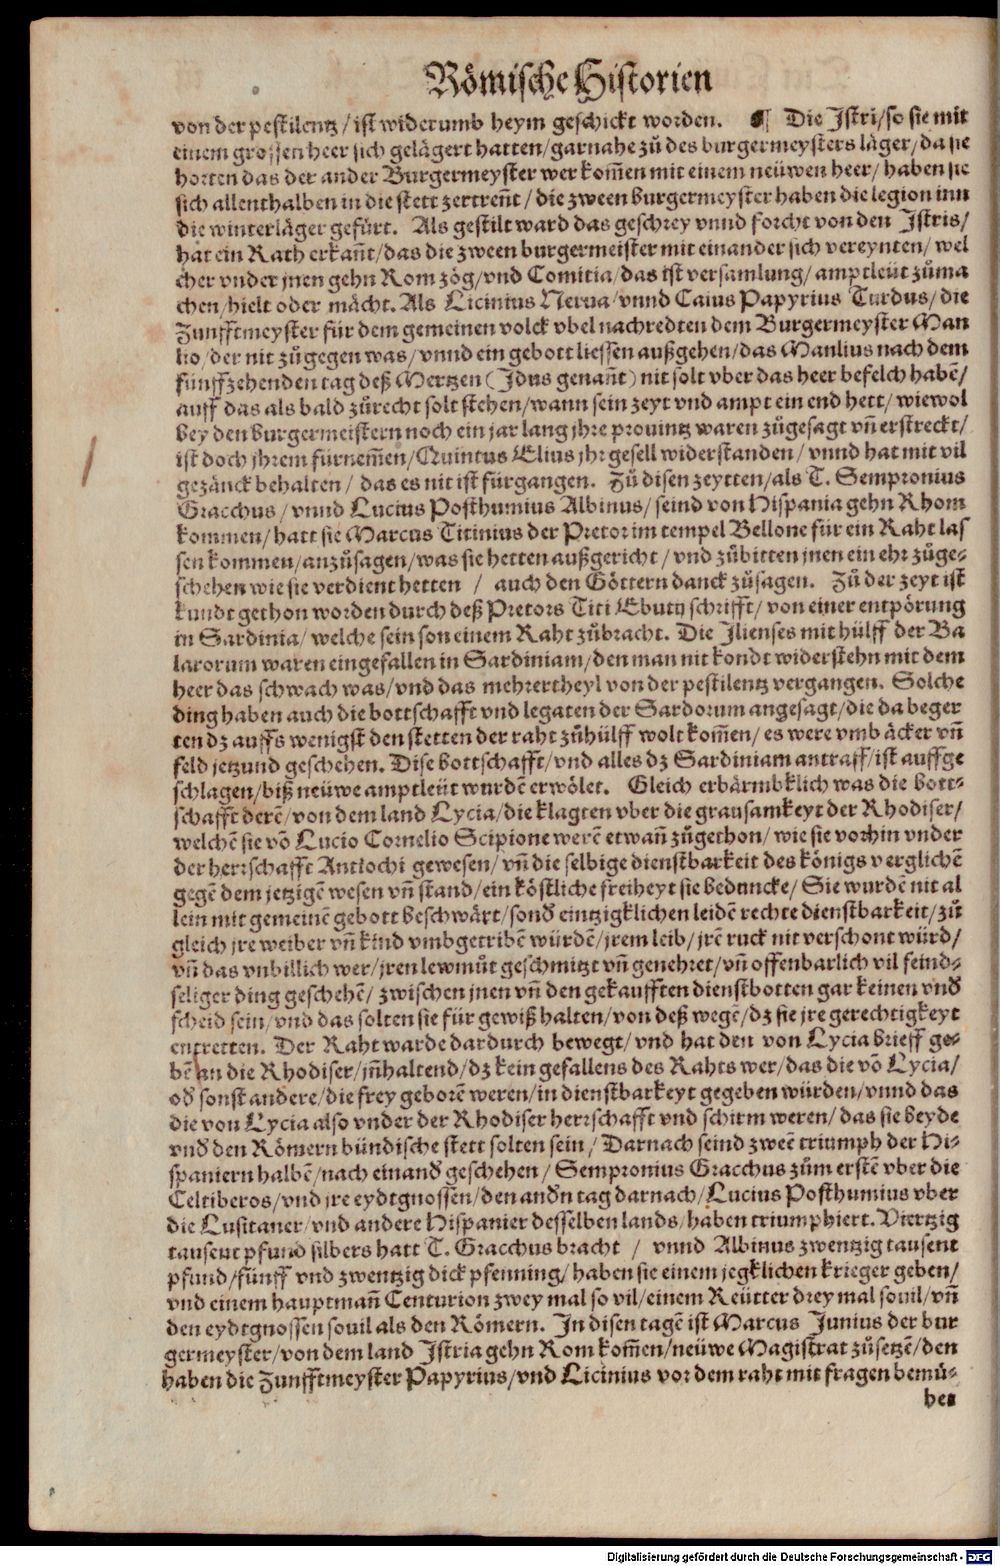 Römische Historien
von der pestilentz / ist widerumb heym geschickt worden. ¶ Die Istri / so sie mit
einem grossen heer sich gelägert hatten / gar nahe zů des burgermeysters läger / da sie
horten das der ander Burgermeyster wer kom̄en mit einem neüwen heer / haben sie
sich allenthalben in die stett zertren̄t / die zween burgermeyster haben die legion inn
die winterläger gefürt. Als gestilt ward das geschrey vnnd forcht von den Istris /
hat ein Rath erkan̄t / das die zween burgermeister mit einander sich vereynten / wel
cher vnder jnen gehn Rom zög / vnd Comitia / das ist versamlung / amptleüt zůma
chen / hielt oder mächt. Als Licinius Nerua / vnnd Caius Papyrius Turdus / die
Zunfftmeyster für dem gemeinen volck vbel nachredten dem Burgermeyster Man
lio / der nit zůgegen was / vnnd ein gebott liessen außgehen / das Manlius nach dem
fünffzehenden tag deß Mertzen (Idus genan̄t) nit solt vber das heer befelch habē /
auff das als bald zůrecht solt stehen / wann sein zeyt vnd ampt ein end hett / wiewol
bey den burgermeistern noch ein jar lang jhre prouintz waren zůgesagt vn̄ erstreckt /
ist doch jhrem fürnem̄en / Quintus Elius jhr gesell widerstanden / vnnd hat mit vil
gezänck behalten / das es nit ist fürgangen. Zů disen zeytten / als T. Sempronius
Gracchus / vnnd Lucius Posthumius Albinus / seind von Hispania gehn Rhom
kommen / hatt sie Marcus Titinius der Pretor im tempel Bellone für ein Raht las
sen kommen / anzůsagen / was sie hetten außgericht / vnd zůbitten jnen ein ehr zůge-
schehen wie sie verdient hetten / auch den Göttern danck zůsagen. Zů der zeyt ist
kundt gethon worden durch deß Pretors Titi Ebutij schrifft / von einer entpörung
in Sardinia / welche sein son einem Raht zůbracht. Die Ilienses mit hülff der Ba
larorum waren eingefallen in Sardiniam / den man nit kondt widerstehn mit dem
heer das schwach was / vnd das mehrertheyl von der pestilentz vergangen. Solche
ding haben auch die bottschafft vnd legaten der Sardorum angesagt / die da beger
ten dz auffs wenigst den stetten der raht zůhülff wolt kom̄en / es were vmb äcker vn̄
feld jetzund geschehen. Dise bottschafft / vnd alles dz Sardiniam antraff / ist auffge
schlagen / biß neüwe amptleüt wurdē erwölet. Gleich erbärmbklich was die bott-
schafft derē / von dem land Lycia / die klagten vber die grausamkeyt der Rhodiser /
welchē sie vō Lucio Cornelio Scipione werē etwan̄ zůgethon / wie sie vorhin vnder
der herrschafft Antiochi gewesen / vn̄ die selbige dienstbarkeit des königs verglichē
gegē dem jetzigē wesen vn̄ stand / ein köstliche freiheyt sie beduncke / Sie wurdē nit al
lein mit gemeinē gebott beschwärt / sond̄ eintzigklichen leidē rechte dienstbarkeit / zů
gleich jre weiber vn̄ kind vmbgetribē würdē / jrem leib / jrē ruck nit verschont würd /
vn̄ das vnbillich wer / jren lewmůt geschmitzt vn̄ genehret / vn̄ offenbarlich vil feind-
seliger ding geschehē / zwischen jnen vn̄ den gekaufften dienstbotten gar keinen vnd̄
scheid sein / vnd das solten sie für gewiß halten / von deß wegē / dz sie jre gerechtigkeyt
entretten. Der Raht warde dardurch bewegt / vnd hat den von Lycia brieff ge-
bē an die Rhodiser / jn̄haltend / dz kein gefallens des Rahts wer / das die vō Lycia /
od̄ sonst andere / die frey geborē weren / in dienstbarkeyt gegeben würden / vnnd das
die von Lycia also vnder der Rhodiser herrschafft vnd schirm weren / das sie beyde
vnd̄ den Römern bündische stett solten sein / Darnach seind zweē triumph der Hi-
spaniern halbē / nach einand̄ geschehen / Sempronius Gracchus zům erstē vber die
Celtiberos / vnd jre eydtgnossen / den and̄n tag darnach / Lucius Posthumius vber
die Lusitaner / vnd andere Hispanier desselben lands / haben triumphiert. Viertzig
tausent pfund silbers hatt T. Gracchus bracht / vnnd Albinus zwentzig tausent
pfund / fünff vnd zwentzig dick pfenning / haben sie einem jegklichen krieger geben /
vnd einem hauptman̄ Centurion zwey mal so vil / einem Reütter drey mal souil / vn̄
den eydtgnossen souil als den Römern. In disen tagē ist Marcus Junius der bur
germeyster / von dem land Istria gehn Rom kom̄en / neüwe Magistrat zůsetzē / den
haben die Zunfftmeyster Papyrius / vnd Licinius vor dem raht mit fragen bemü-
het
Digitalisierung gefördert durch die Deutsche Forschungsgemeinschaft - DFG